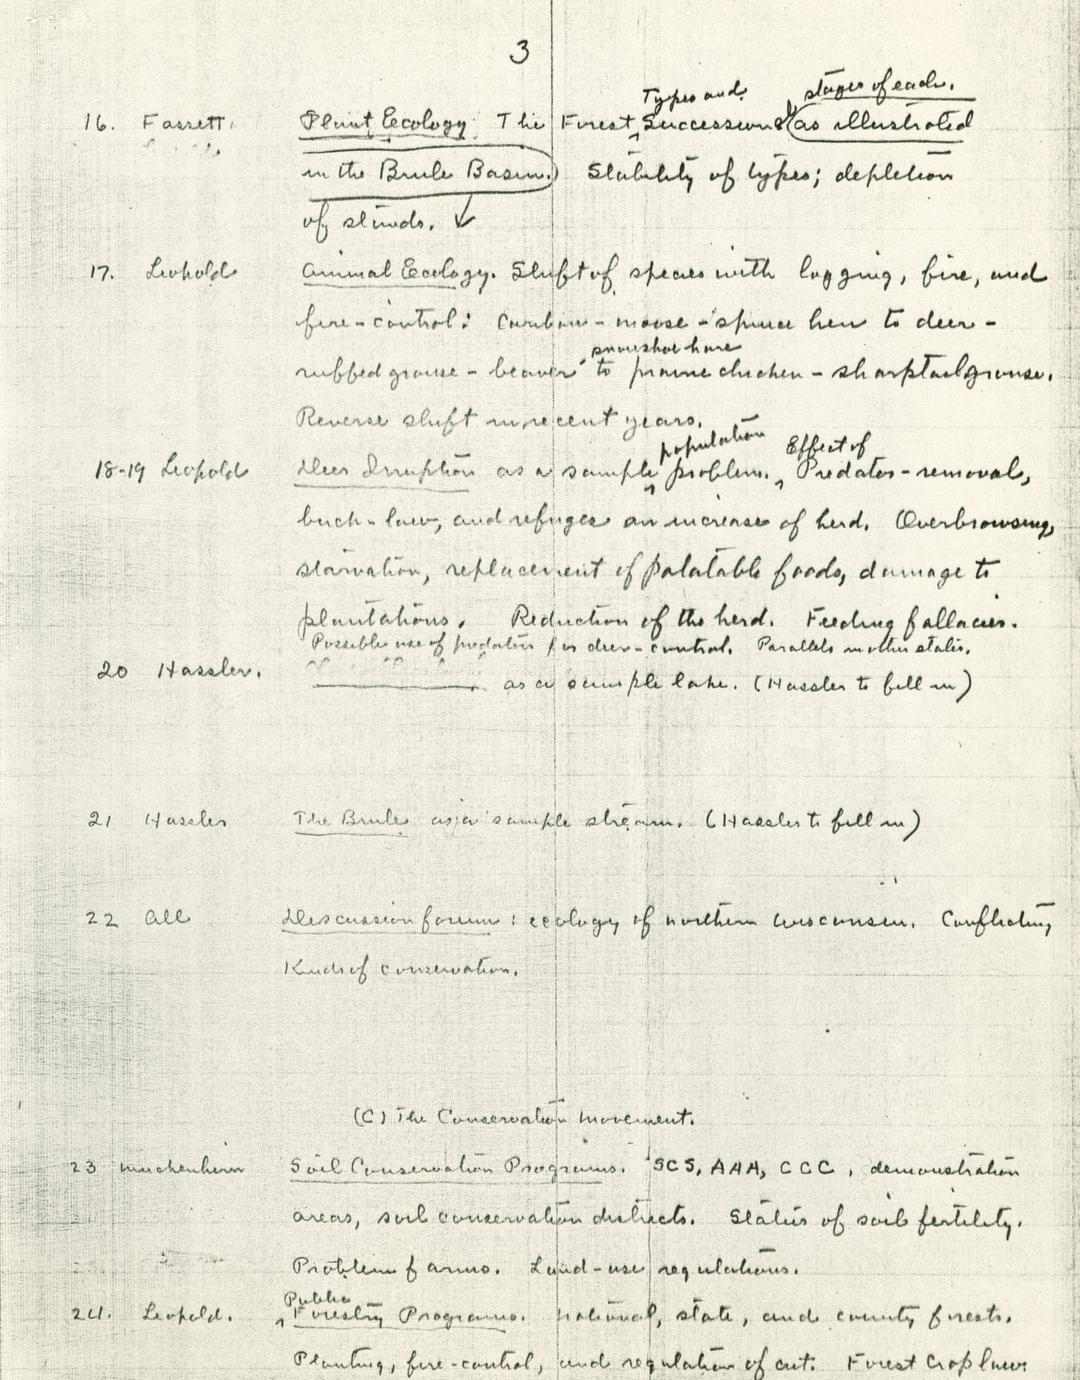 3
Types and stages of each.
16. Fassett. Plant Ecology. The Forest Successions (as illustrated
in the Brule Basin.) Stability of types; depletion
of stands.
17. Leopold Animal Ecology. Shift of species with logging, fire, and
fire-control: Caribou - moose - spruce hen to deer -
snowshoe hare
ruffed grouse - beaver to prairie chicken - sharptail grouse.
Reverse shift in recent years.
population Effect of
18-19 Leopold Deer Irruption as a sample problem. Predator-removal,
buck-law, and refuges on increase of herd. Overbrowsing,
starvation, replacement of palatable foods, damage to
plantations. Reduction of the herd. Feeding fallacies.
Possible use of predators for deer-control. Parallels in other states.
20 Hassler. as a sample lake. (Hassler to fill in)
21 Hassler The Brule as a sample stream. (Hassler to fill in)
22 All Discussion forum: ecology of northern Wisconsin. Conflicting
Kinds of conservation.
(C) The Conservation Movement.
23 Muckenhirn Soil Conservation Programs. SCS, AAA, CCC, demonstration
areas, soil conservation districts. Status of soil fertility.
Problem farms. Land-use regulations.
Public
24. Leopold. Forestry Programs. National, state, and county forests.
Planting, fire-control, and regulation of cut. Forest Crop law: